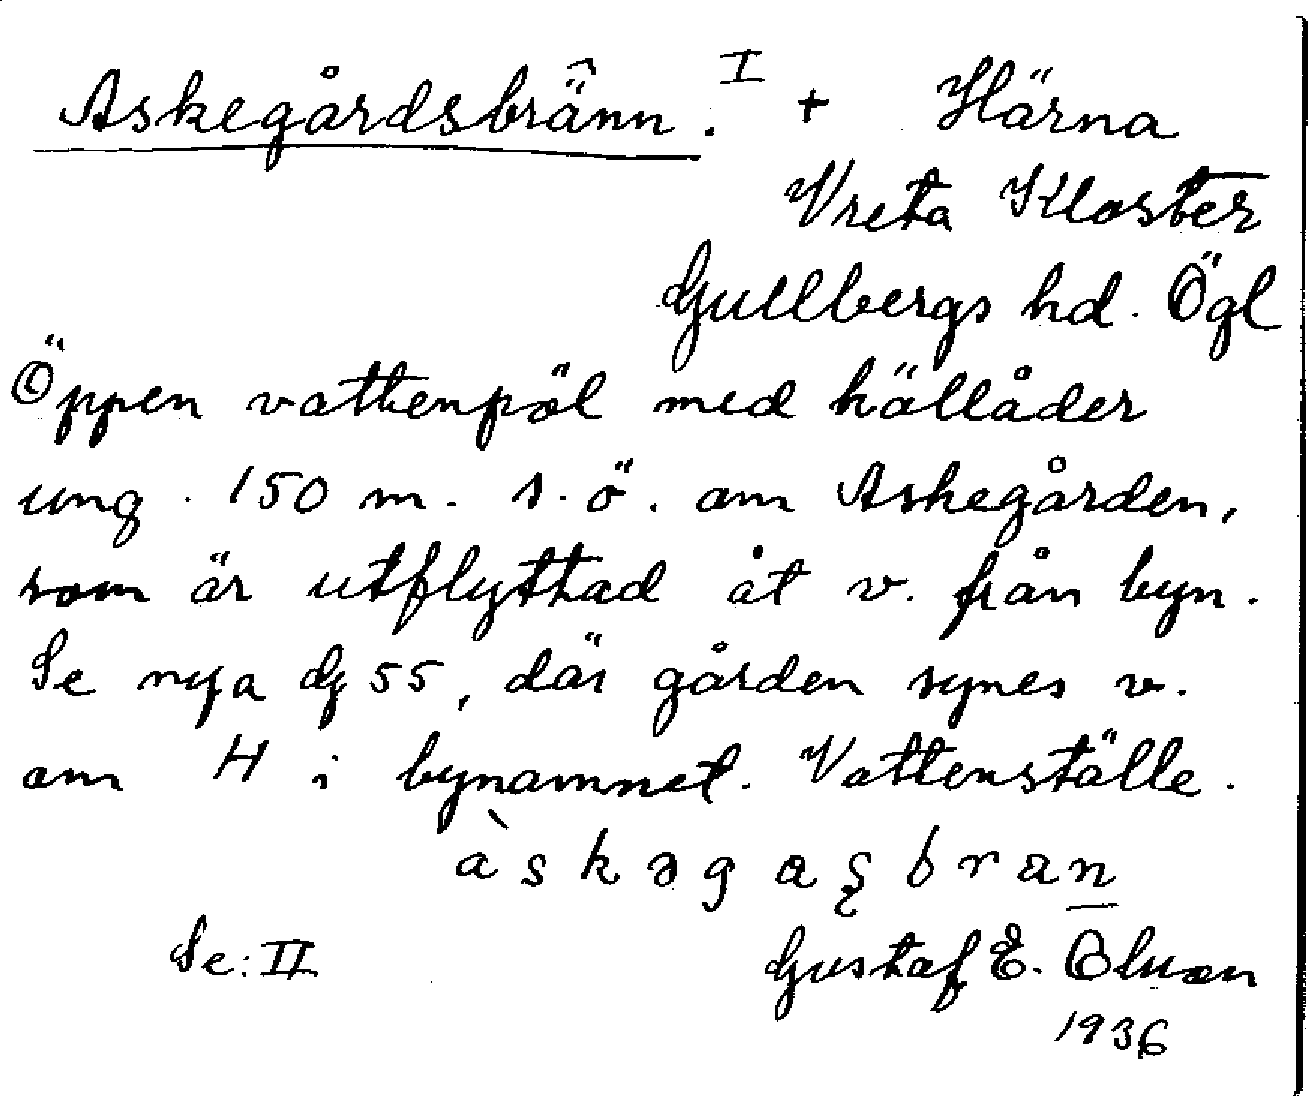 Askegårdsbränn. I + Härna
Vreta Kloster
Gullbergs hd. Ögl
Öppen vattenpöl med källåder
ung. 150 m. s.ö. om Askegården,
som är utflyttad åt v. från byn.
Se nya dj 55, där gården synes v.
om H i bynamnet. Vattenställe.
àskəgaʂbran
Se: II Gustaf E. Olsson
1936